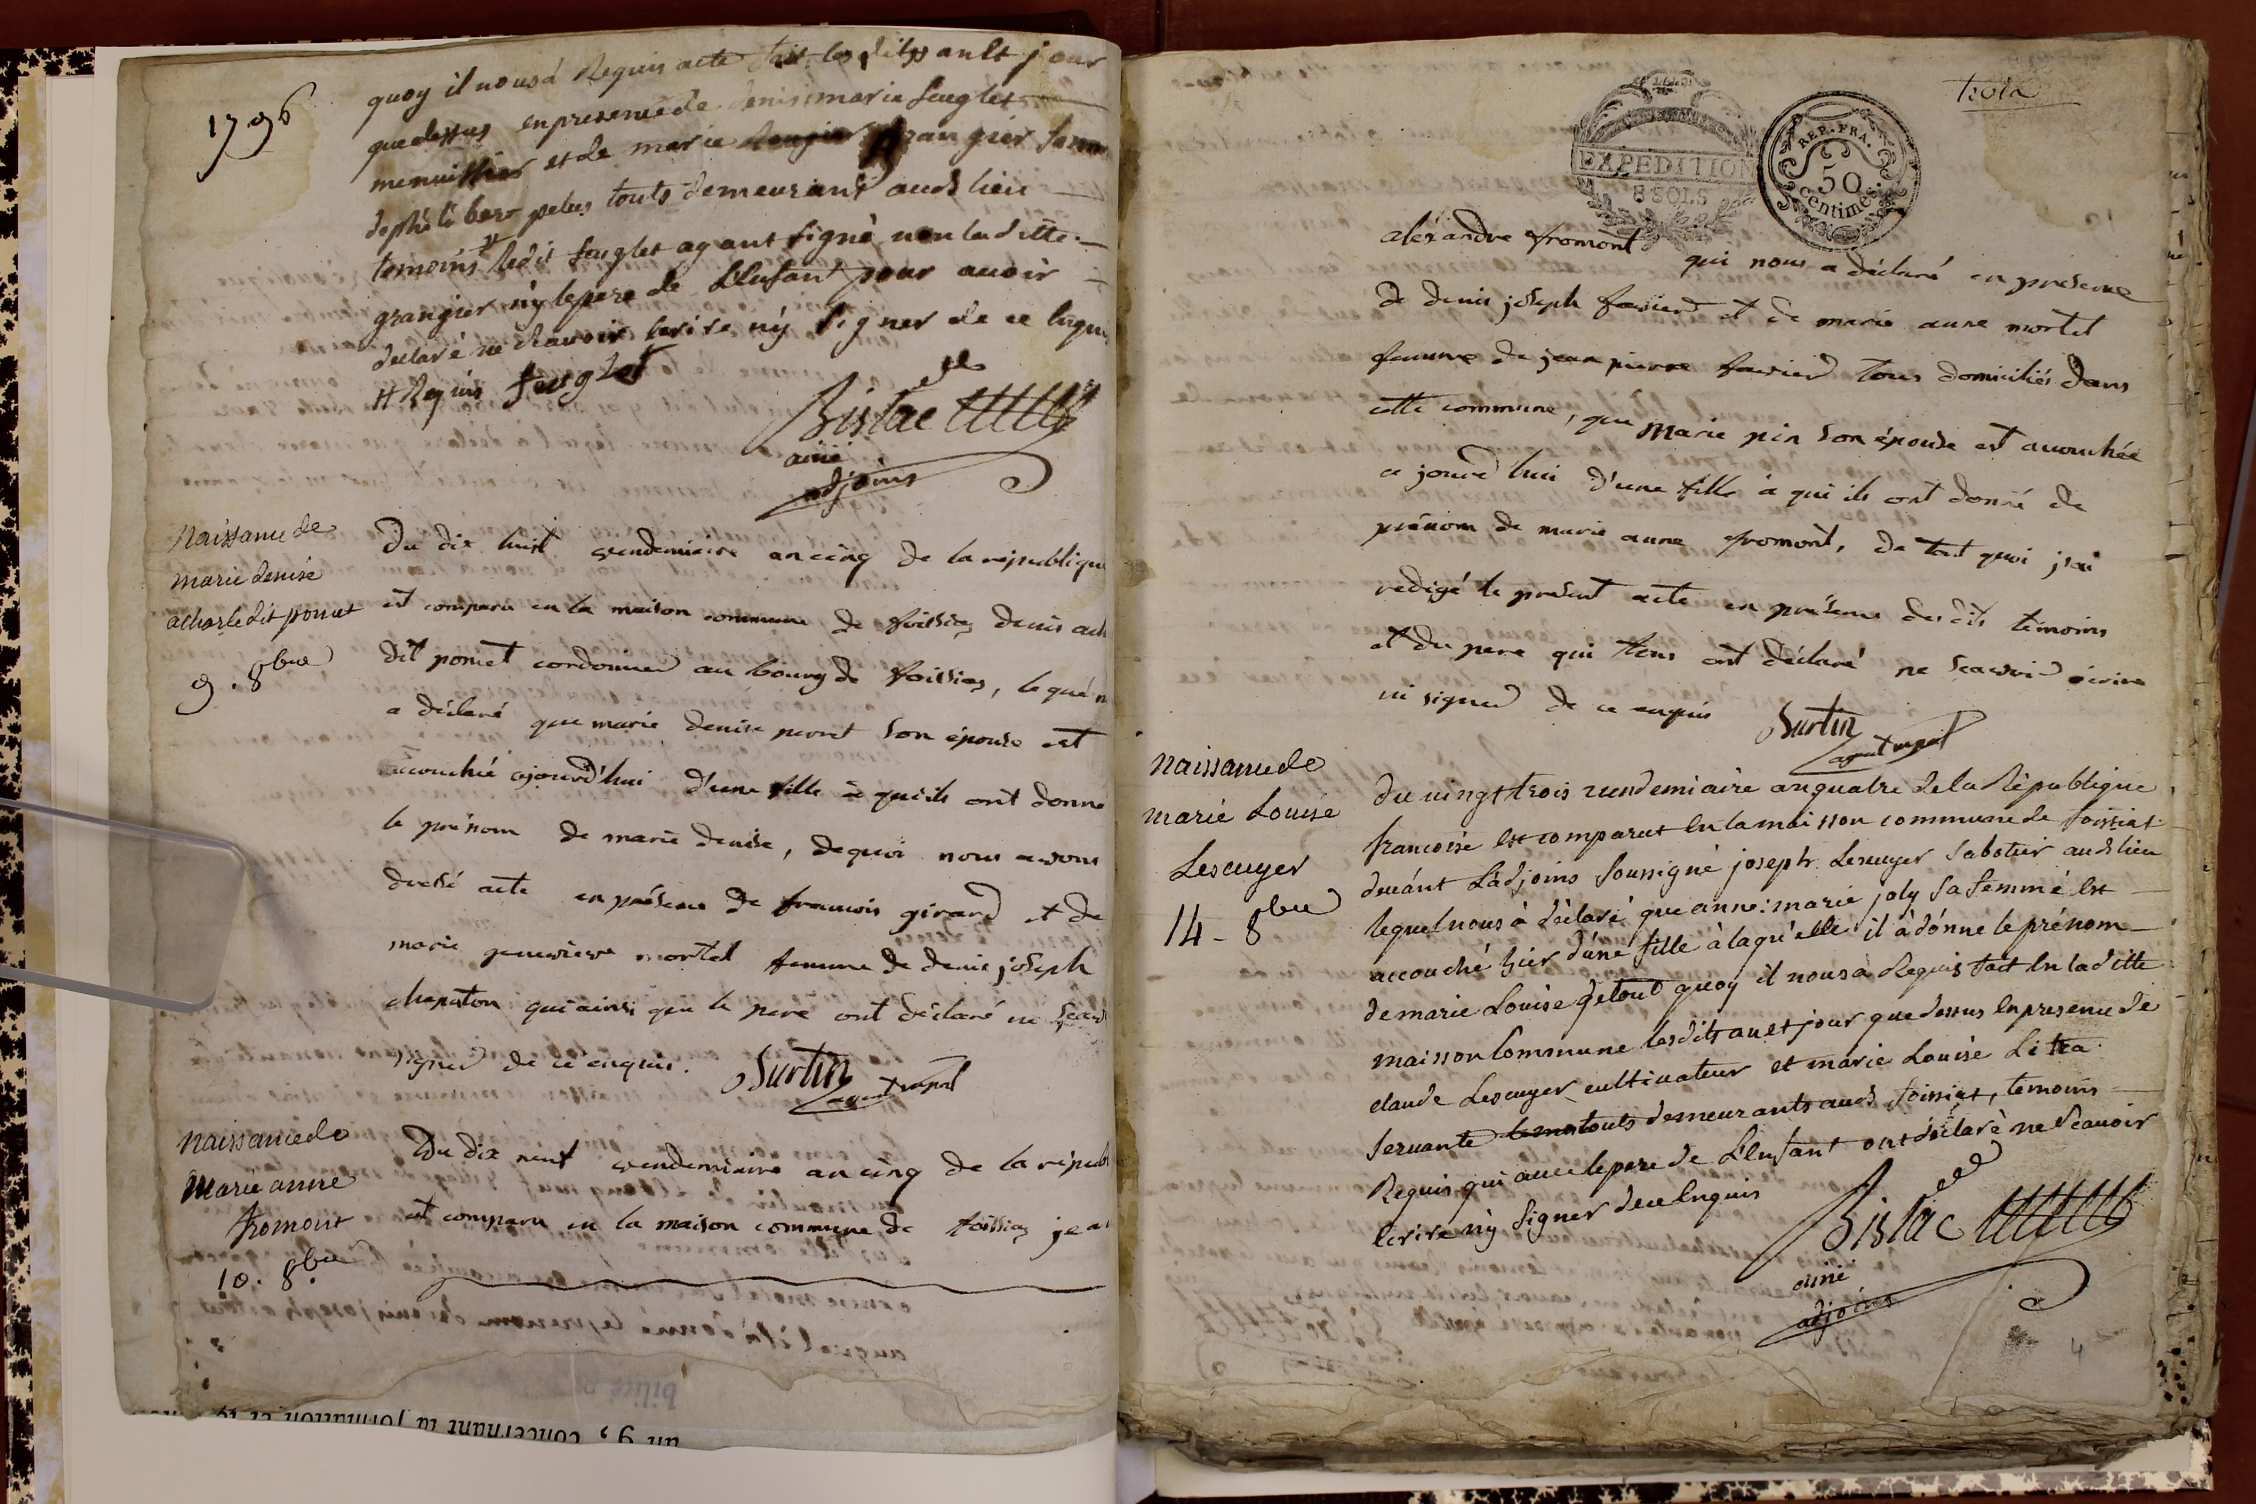 1796
quoy il nous à Requis acte fait les dits an et jour
que dessus en presence de denis marie feuglet
menuissier et de marie grangier femme
touts demeurant auds lieu
temoins ledit feuglet ayant signé non laditte
grangier ny le pere de L'enfant pour avoir
declaré ne sçavoir Ecrire ny signer de ce Enquis
et Requis feuglet
Bislac
ainé
adjoins
Naissance de
marie denise
acharle dit ponut
9. 8bre
Du dix huit vendemiaire an cinq de la republique
est comparu en la maison commune de foissiaz denis ach
dit ponut cordonnier au bourg de foissiaz, lequel n
a déclaré que marie denise son épouse est
accouchée ajourd'hui d'une fille à qui ils ont donne
le prénom de marie denise, de quoi nous avons
dressé acte en présence de francois girard et de
marie genevieve mortel femme de denis joseph
chapaton qui ainsi que le pere ont déclaré ne sçav
signer de ce enquis. Surtin
agent mpal
Naissance de
Marie anne
fromont
10. 8bre
Du dix neuf vendemiaire an cinq de la républ
est comparu en la maison commune de foissiaz jea
trois
EXPEDITION
8 SOLS
REP. FRA.
50
Centimes.
aléxandre fromont qui nous a déclaré en présence
de denis joseph favier et de marie anne mortel
femme de jean pierre favier tous domiciliés dans
cette commune, que Marie pin son épouse est accouchée
ce jourd hui d'une fille à qui ils ont donné de
prénom de marie anne fromont, de tout quoi j'ai
redigé le présent acte en présence des dits témoins
et du pere qui tous ont déclaré ne sçavoir écrire
ni signer de ce enquis Surtin
agent mpal
Naissance de
marie Louise
Lescuyer
14 - 8bre
du vingt trois vendemiaire an quatre de la République
francoise est comparut En la maisson commune de foissiat
devant L'adjoins soussigné joseph Lescuyer sabotier auds lieu
lequel nous à déclaré que anne: marie joly sa femme est
accouché hier d'une fille à laqu'elle il à donné le prénom
de marie Louise de tout quoy il nous à Requis fait En laditte
maisson Commune lesdits an et jour que dessus En presence de
claude Lescuyer cultivateur et marie Louise
servante touts demeurants auds foissiat, temoins
Requis qui avec le pere de L'Enfant ont déclaré ne sçavoir
Ecrire ny signer de ce Enquis
Bislac
ainé
adjoins
4
an 9, concernant la formation et le